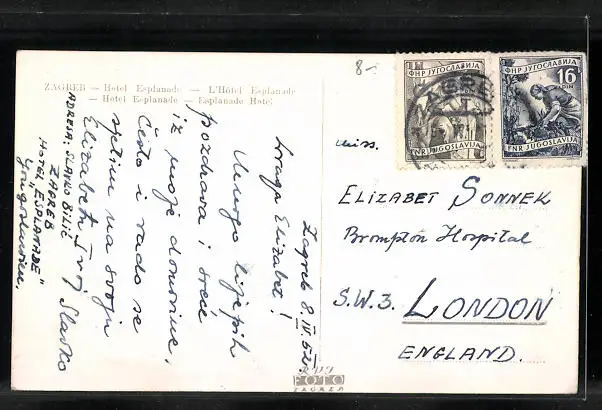 ZAGREB — Hotel Esplanade — L'Hôtel Esplanade
— Hôtel Esplanade — Esplanade Hotel
Zagreb 8. IV. 52
Draga Elizabet!
Mnogo lijepih
pozdrava i sreće
iz moje domovine,
Često i rado se
sjetim na svoju
Elizabeth Tvoj Slavko
ADRESA: SLAVKO BILIĆ
ZAGREB
HOTEL "ESPLANADE"
Yougoslavien.
8-
ФНР ЈУГОСЛАВИЈА
FNR JUGOSLAVIJA
ФНР ЈУГОСЛАВИЈА
16
DIN
FNR JUGOSLAVIJA
miss.
ELIZABET SONNEK
Brompton Hospital
S.W.3. LONDON
ENGLAND.
FOTO
ZAGREB